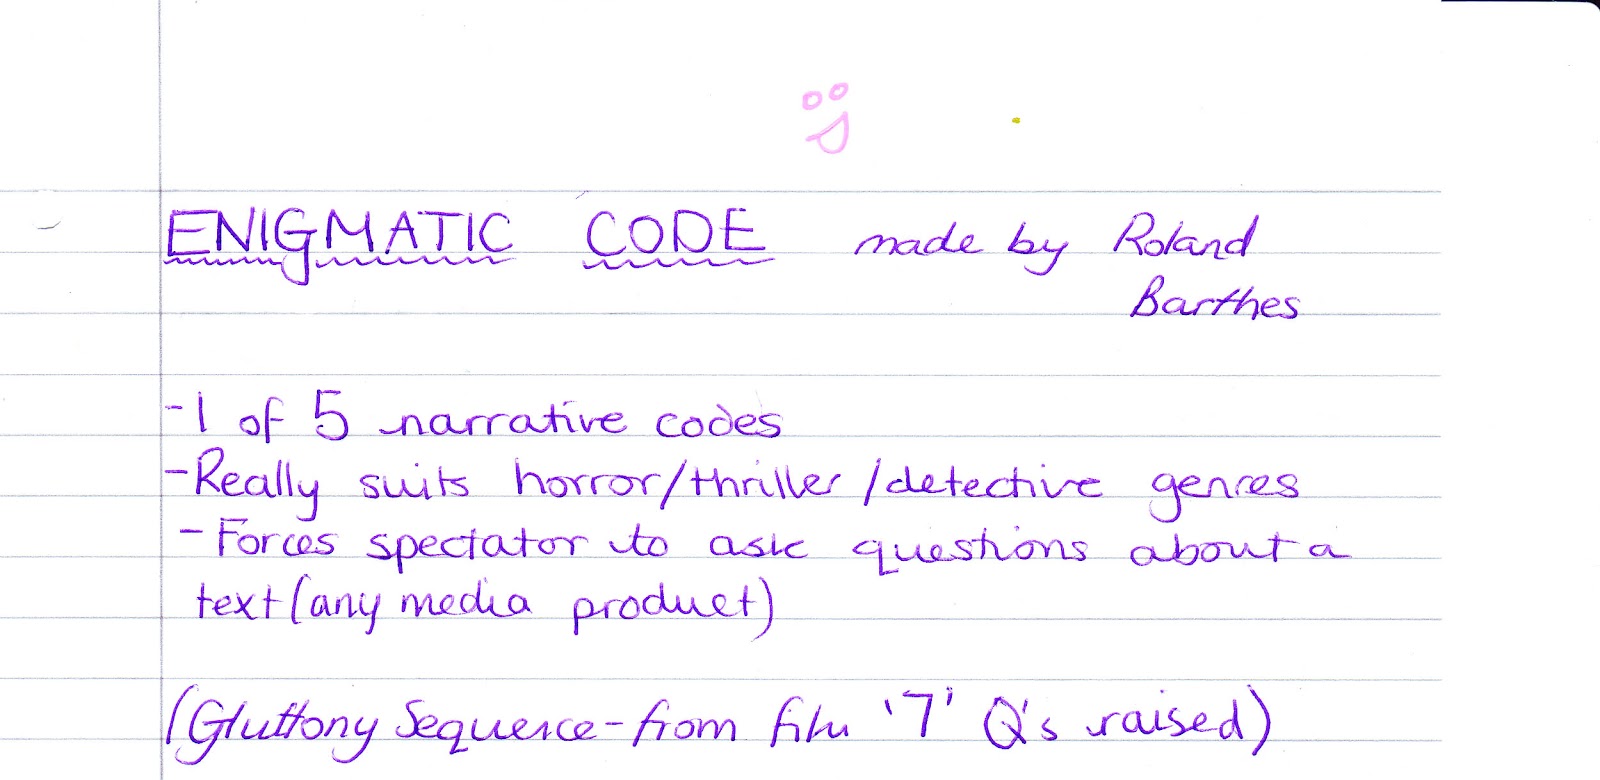 ENIGMATIC CODE made by Roland
Barthes
-1 of 5 narrative codes
-Really suits horror/thriller/detective genres
-Forces spectator to ask questions about a
text (any media product)
(Gluttony Sequence-from film '7' Q's raised)